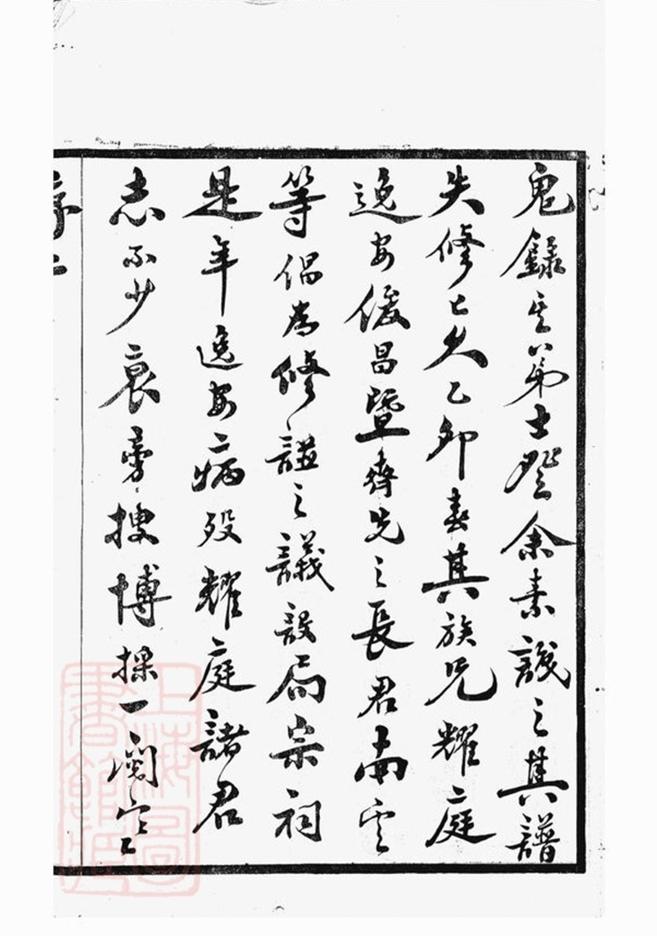 鬼錄其弟士登余素識之其譜
失修已久乙卯春其族兄耀庭
逸安俊昌暨齊先之長君雨雲
等倡為修譜之議設局宗祠
是年逸安病歿耀庭諸君
志不少衰旁搜博採一閱寒
序二
上海圖
書館藏